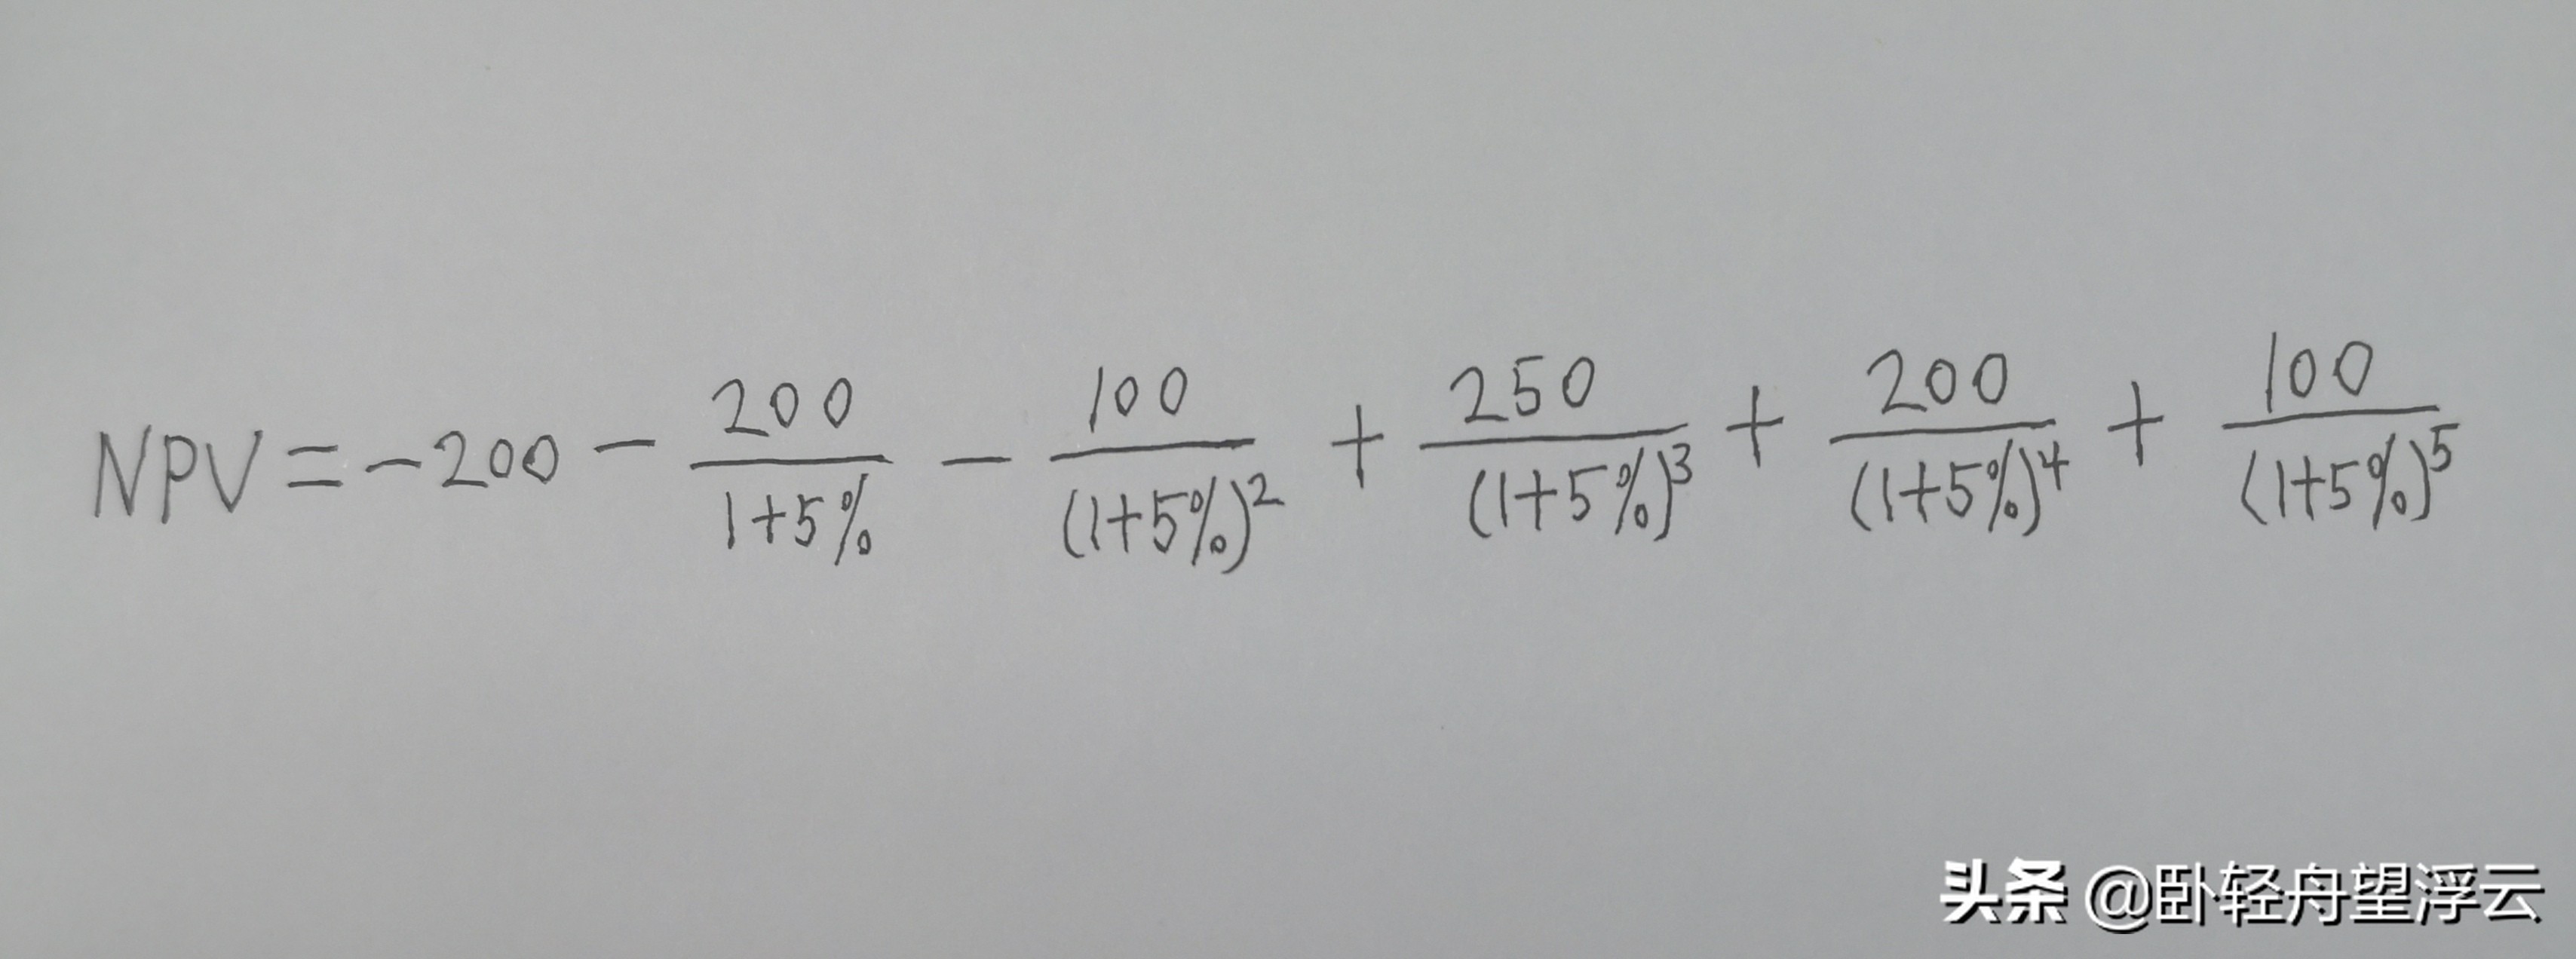 NPV = -200 - \frac{200}{1+5%} - \frac{100}{(1+5%)^2} + \frac{250}{(1+5%)^3} + \frac{200}{(1+5%)^4} + \frac{100}{(1+5%)^5}
头条 @卧轻舟望浮云